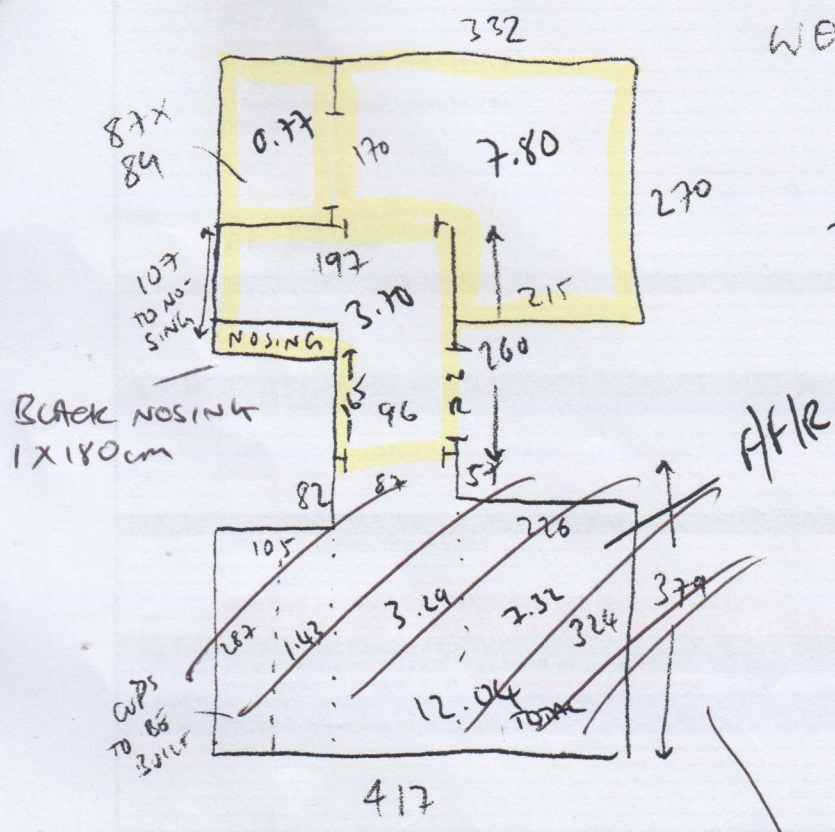 332
WE
87x
84
0.77
170
7.80
270
107
TO NO-
SING
197
3.70
215
NOSING
260
165
96
BLACK NOSING
1X180cm
57
82
87
F/F/R
105
226
287
1.43
3.29
7.32
324
379
12.04
TOTAL
CUPS
TO BE
BUILT
417